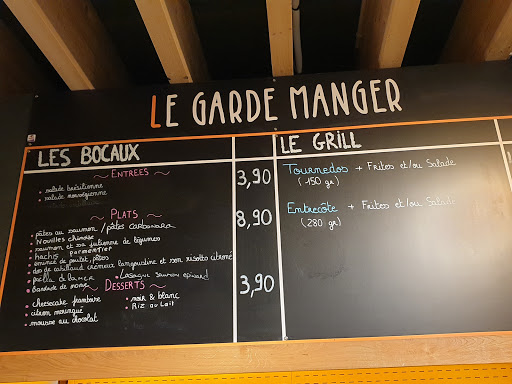 LE GARDE MANGER
LES BOCAUX
~ ENTREES ~
• salade brésilienne
• salade norvégienne
3,90
~ PLATS ~
• pâtes au saumon / pâtes carbonara
• Nouilles chinoise
• saumon et sa julienne de légumes
• hachis parmentier
• émincé de poulet, pâtes
• dos de cabillaud crémeux langoustine et son risotto citronné
• paella de la mer
• Lasagne saumon épinard
8,90
~ DESSERTS ~
• cheesecake framboise
• citron meringué
• mousse au chocolat
• noir & blanc
• Riz au lait
3,90
LE GRILL
Tournedos + Frites et/ou Salade
(150 gr)
Entrecôte + Frites et/ou Salade
(280 gr)